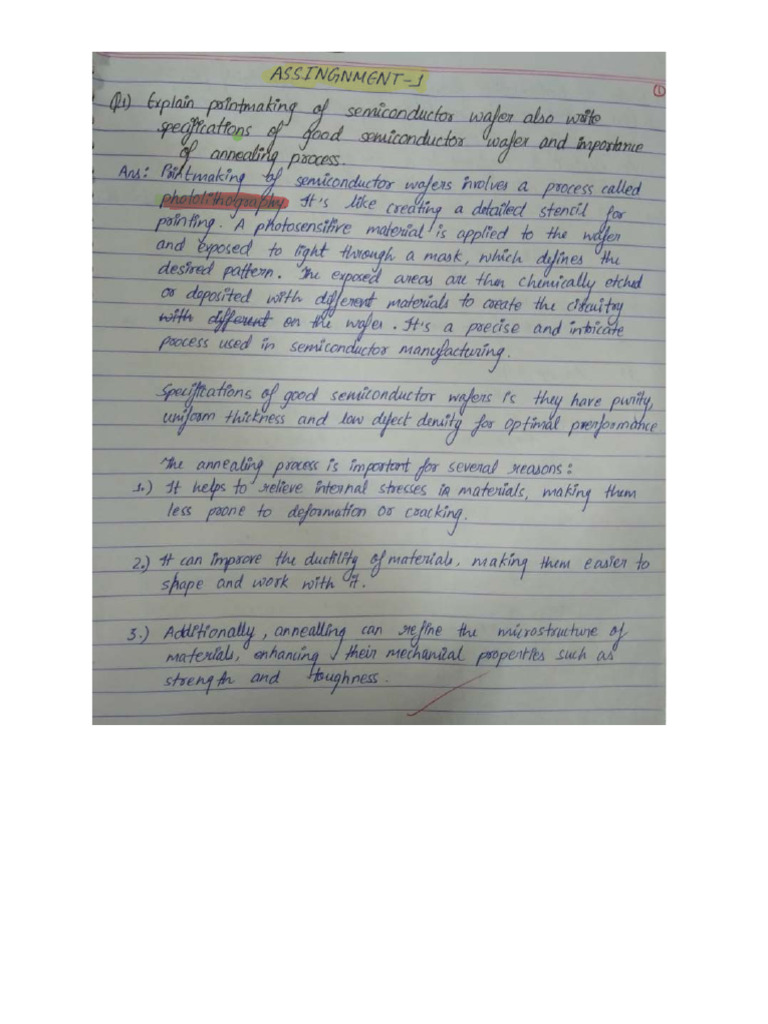 ASSINGNMENT-1
1
Q1) Explain printmaking of semiconductor wafer also write
specifications of good semiconductor wafer and importance
of annealing process.
Ans: Printmaking of semiconductor wafers involves a process called
photolithography. It's like creating a detailed stencil for
printing. A photosensitive material is applied to the wafer
and exposed to light through a mask, which defines the
desired pattern. The exposed areas are then chemically etched
or deposited with different materials to create the circuitry
with different on the wafer. It's a precise and intricate
process used in semiconductor manufacturing.
Specifications of good semiconductor wafers is they have purity,
uniform thickness and low defect density for optimal prerformance
The annealing process is important for several reasons:
1.) It helps to relieve internal stresses in materials, making them
less prone to deformation or cracking.
2.) It can improve the ductility of materials, making them easier to
shape and work with it.
3.) Additionally, annealling can refine the microstructure of
materials, enhancing their mechanical properties such as
strength and toughness.